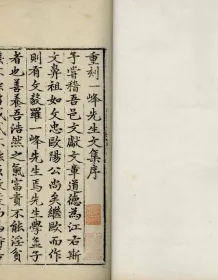 重刻一峰先生文集序
予嘗稽吾邑文獻文章道德為江右斯
文鼻祖如文忠歐陽公尚矣繼歐而作
則有文毅羅一峰先生焉先生學孟子
者也善養吾浩然之氣富貴不能淫貧